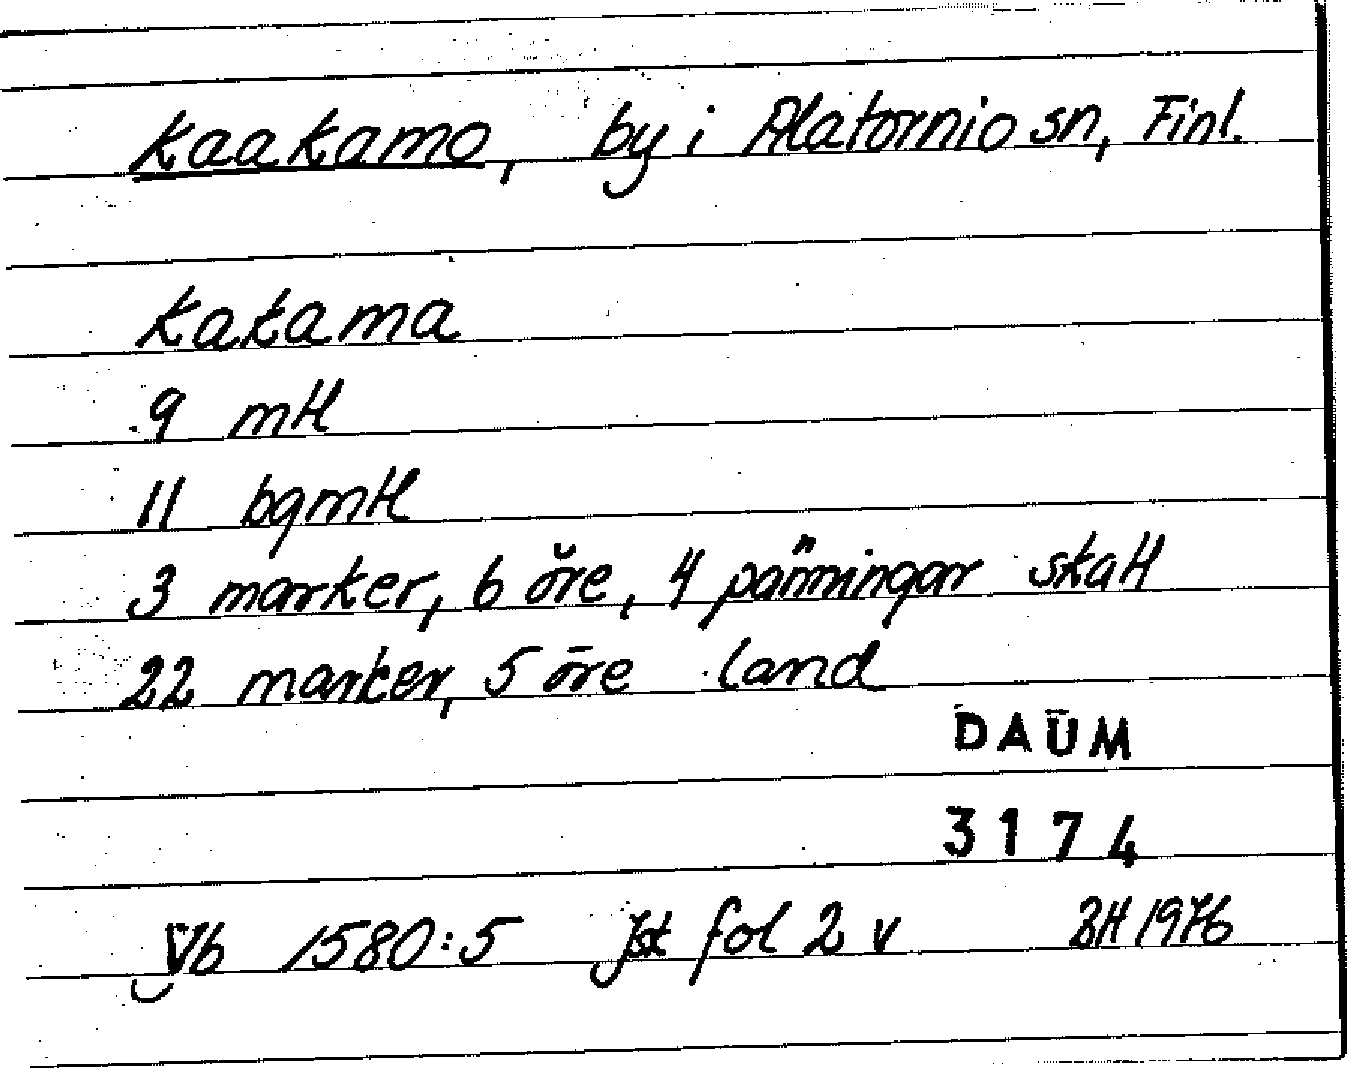 Kaakamo, by i Alatornio sn, Finl.
Kakama
9 mtl
11 bgmtl
3 marker, 6 öre, 4 pänningar skatt
22 marker, 5 öre land
DAUM
3174
Vb 1580:5 Jst fol 2 v BH 1976